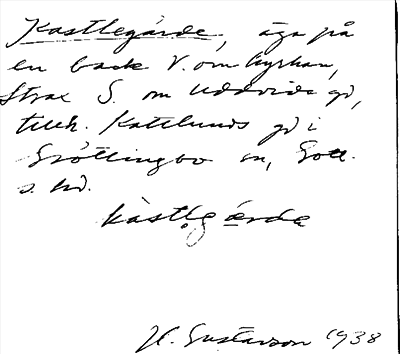 Kastlegärde, äga på
en back V. om kyrkan,
strax S. om Uddvids gd,
tillh. Kattlunds gd i
Gröttingbo sn, Gotl.
s. hd.
kàstlgärde
H. Gustavson 1938